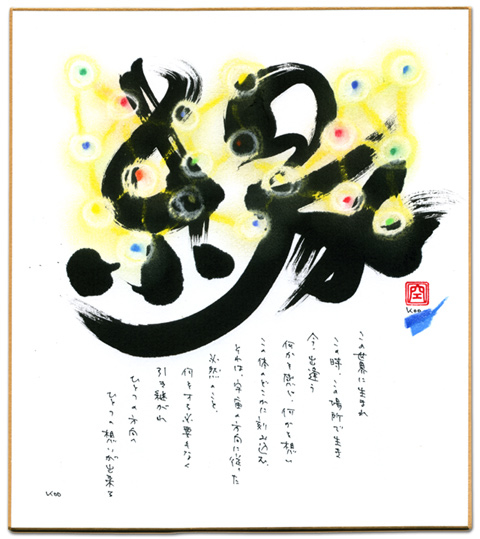 縁
空
Koo
この世界に生まれ
この時、この場所で生き
今、出逢う
何かを感じ、何かを想い
この体のどこかに刻み込む。
それは、宇宙の方向に従った
必然のこと。
何をする必要もなく
引き継がれ
ひとつの方向の
ひとつの想いが出来る
Koo